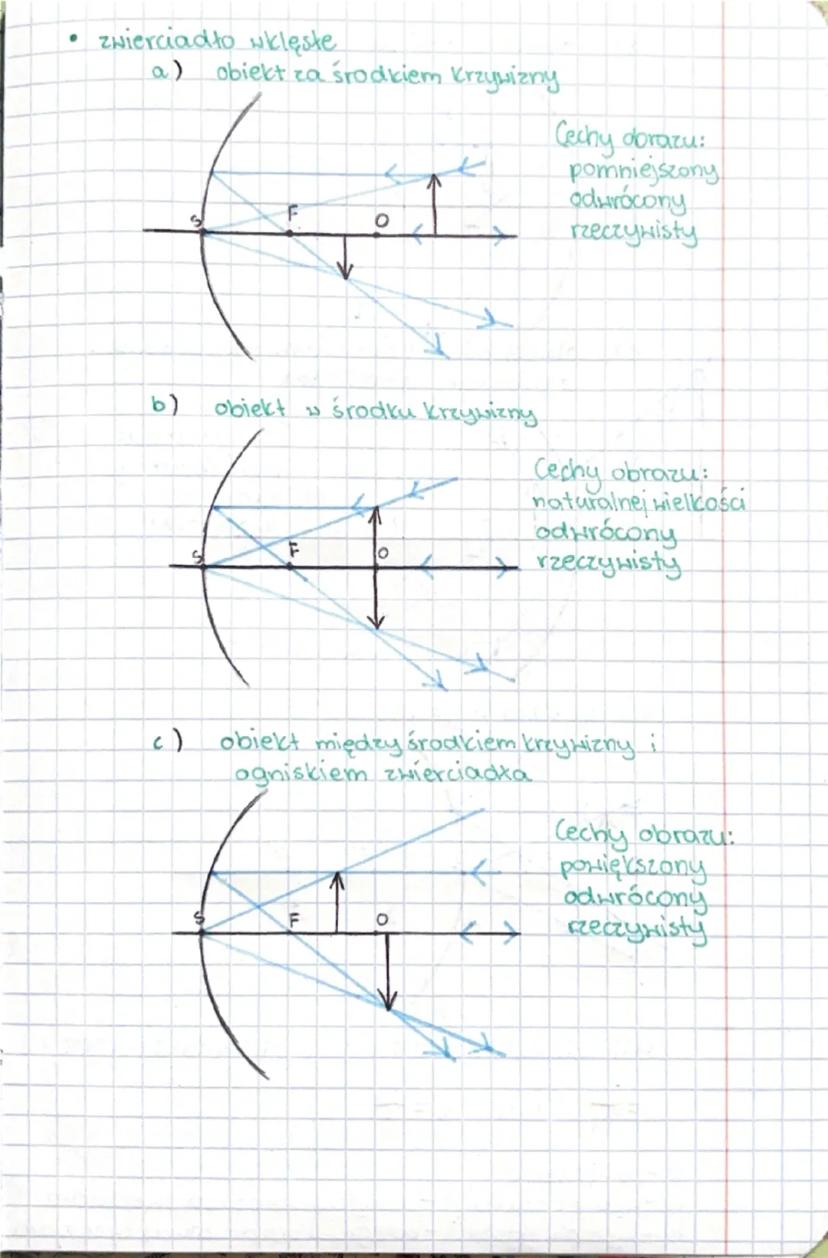 • zwierciadło wklęsłe
a) obiekt za środkiem krzywizny
Cechy obrazu:
pomniejszony
odwrócony
rzeczywisty
S F O
b) obiekt w środku krzywizny
Cechy obrazu:
naturalnej wielkości
odwrócony
rzeczywisty
S F O
c) obiekt między środkiem krzywizny i
ogniskiem zwierciadła
Cechy obrazu:
powiększony
odwrócony
rzeczywisty
S F O